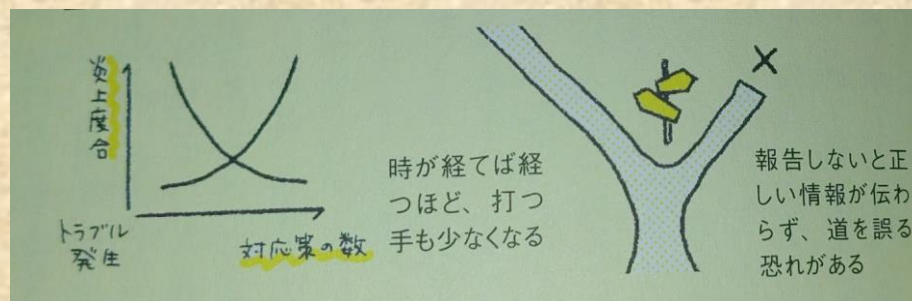 炎上度合
トラブル
発生
対応策の数
時が経てば経
つほど、打つ
手も少なくなる
×
報告しないと正
しい情報が伝わ
らず、道を誤る
恐れがある